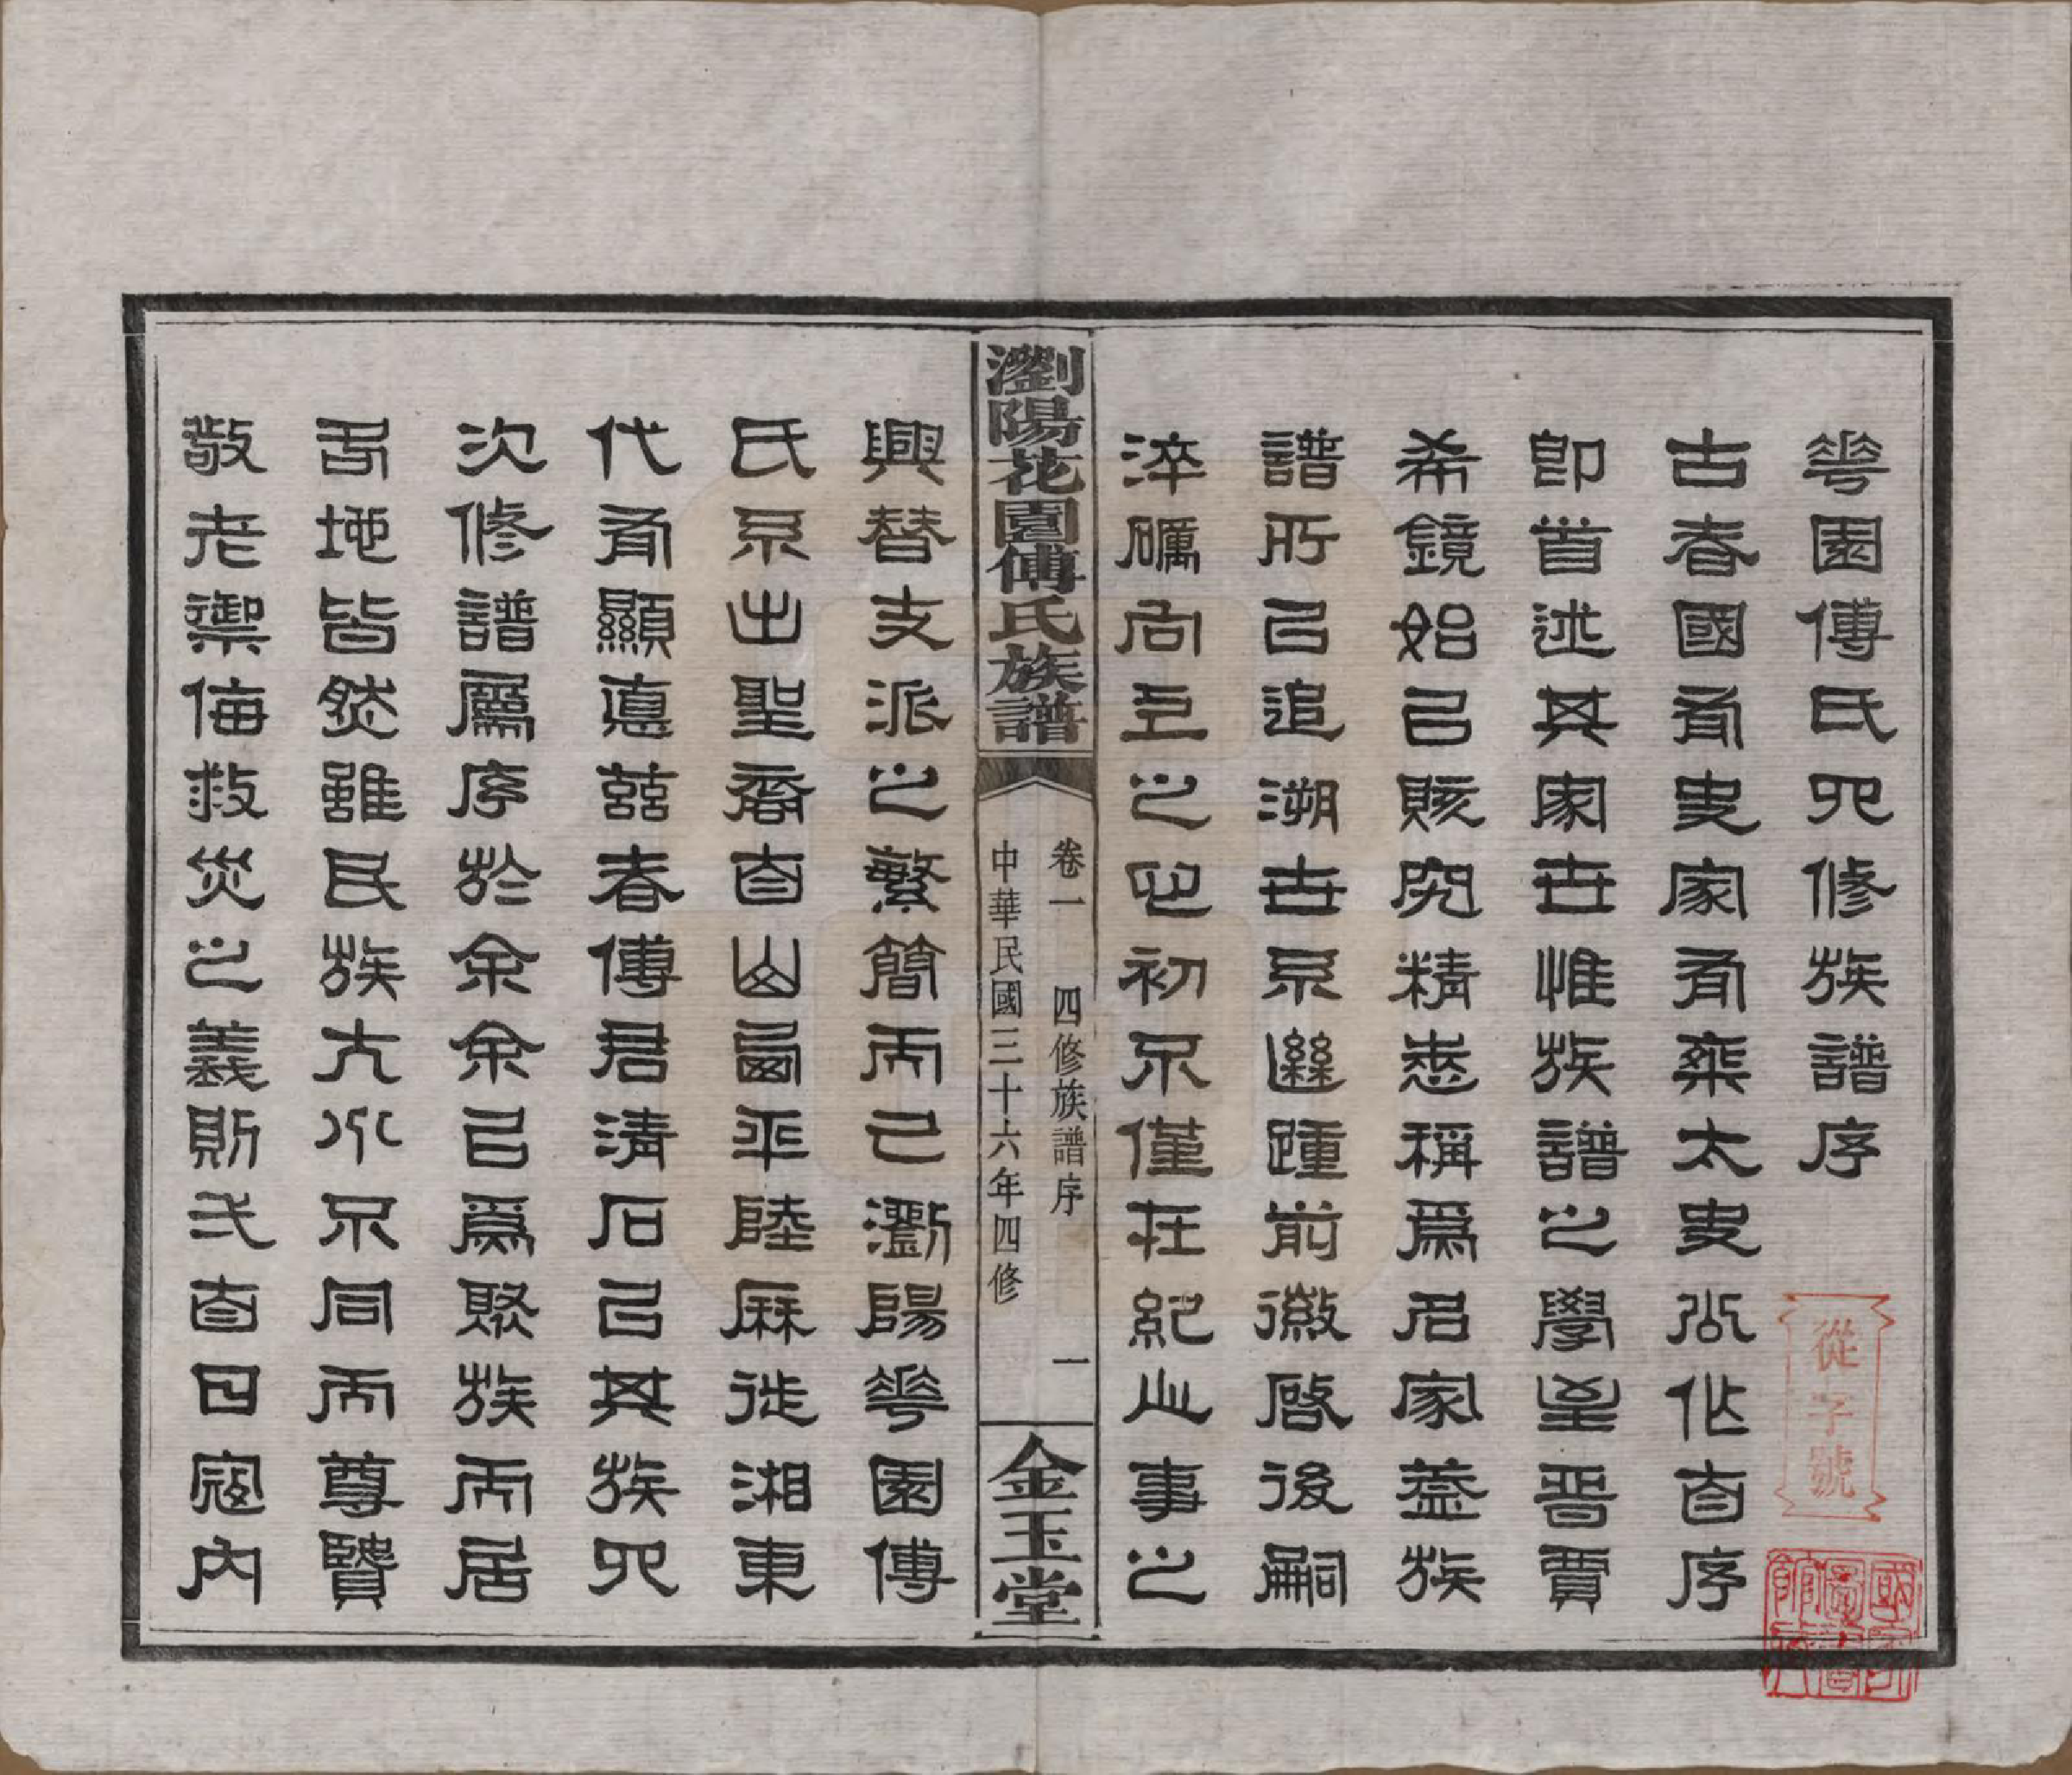 華園傅氏四修族譜序
古者國有史家有乘太史公作自序
即首述其家世惟族譜之學至晉賈
希鏡始以賅究精悉稱爲名家蓋族
譜所以追溯世系繼踵前徽啟後嗣
淬礪向上之心初不僅在紀山事之
興替支派之繁簡而已瀏陽華園傅
氏系出聖裔自山西平陸麻徙湘東
代有顯德喆者傅君清石以其族四
次修譜屬序於余余以爲聚族而居
吾地皆然雖民族大小不同而尊賢
敬老禦侮救災之義則弌自日寇內
瀏陽花園傅氏族譜
卷一 四修族譜序 一
中華民國三十六年四修
金玉堂
從字號